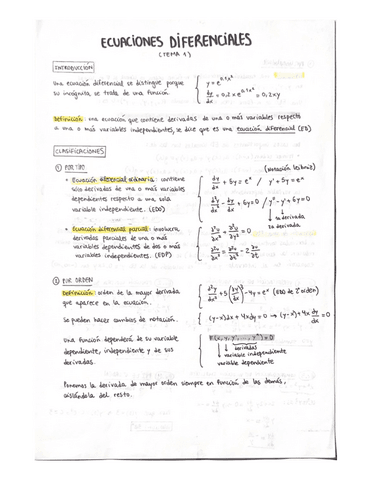 ECUACIONES DIFERENCIALES
(TEMA 1)
INTRODUCCIÓN
Una ecuación diferencial se distingue porque
su incógnita, se trata de una función.
y = e^{0,1x²}
dy/dx = 0,2xe^{0,1x²} = 0,2xy
Definición: una ecuación que contiene derivadas de una o más variables respecto
a una o más variables independientes, se dice que es una ecuación diferencial (ED)
CLASIFICACIONES
① POR TIPO
(Notación Leibniz)
• Ecuación diferencial ordinaria: contiene
sólo derivadas de una o más variables
dependientes respecto a una sola
variable independiente. (EDO)
dy/dx + 5y = eˣ / y' + 5y = eˣ
d²y/dx² - dy/dx + 6y = 0 / y'' - y' + 6y = 0
1a derivada
2a derivada
• Ecuación diferencial parcial: involucra
derivadas parciales de una o más
variables dependientes de dos o más
variables independientes. (EDP)
∂²u/∂x² + ∂²u/∂y² = 0
∂²u/∂x² = ∂²u/∂t² - 2 ∂u/∂t
② POR ORDEN
Definición: orden de la mayor derivada
que aparece en la ecuación.
d²y/dx² + 5(dy/dx)³ - 4y = eˣ (EDO de 2º orden)
Se pueden hacer cambios de notación.
(y-x)dx + 4xdy = 0 → (y-x) + 4x dy/dx = 0
Una función dependiente de su variable
dependiente, independiente y de sus
derivadas.
F(x, y, y', ..., yⁿ) = 0
derivadas
variable independiente
variable dependiente
Ponemos la derivada de mayor orden siempre en función de las demás,
aislándola del resto.